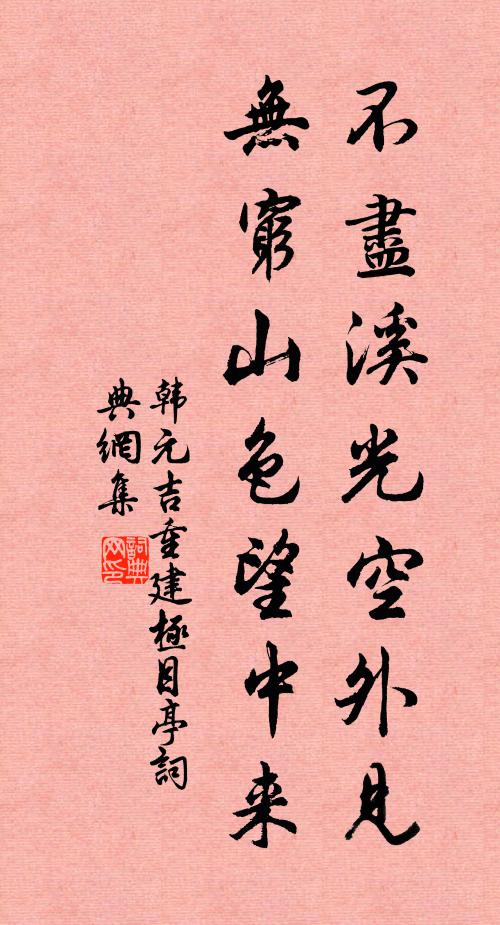 不盡溪光空外見
無窮山色望中来
韩元吉重建極目亭詞
典網集
詞典
网印